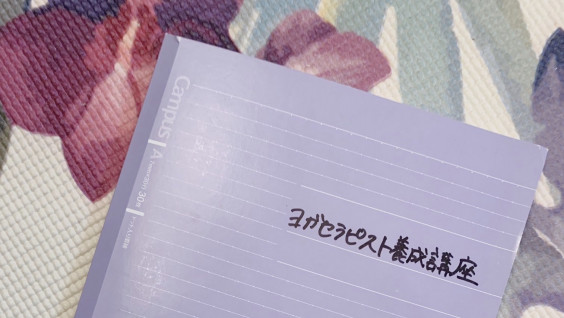 Campus
A
30枚
ヨガセラピスト養成講座